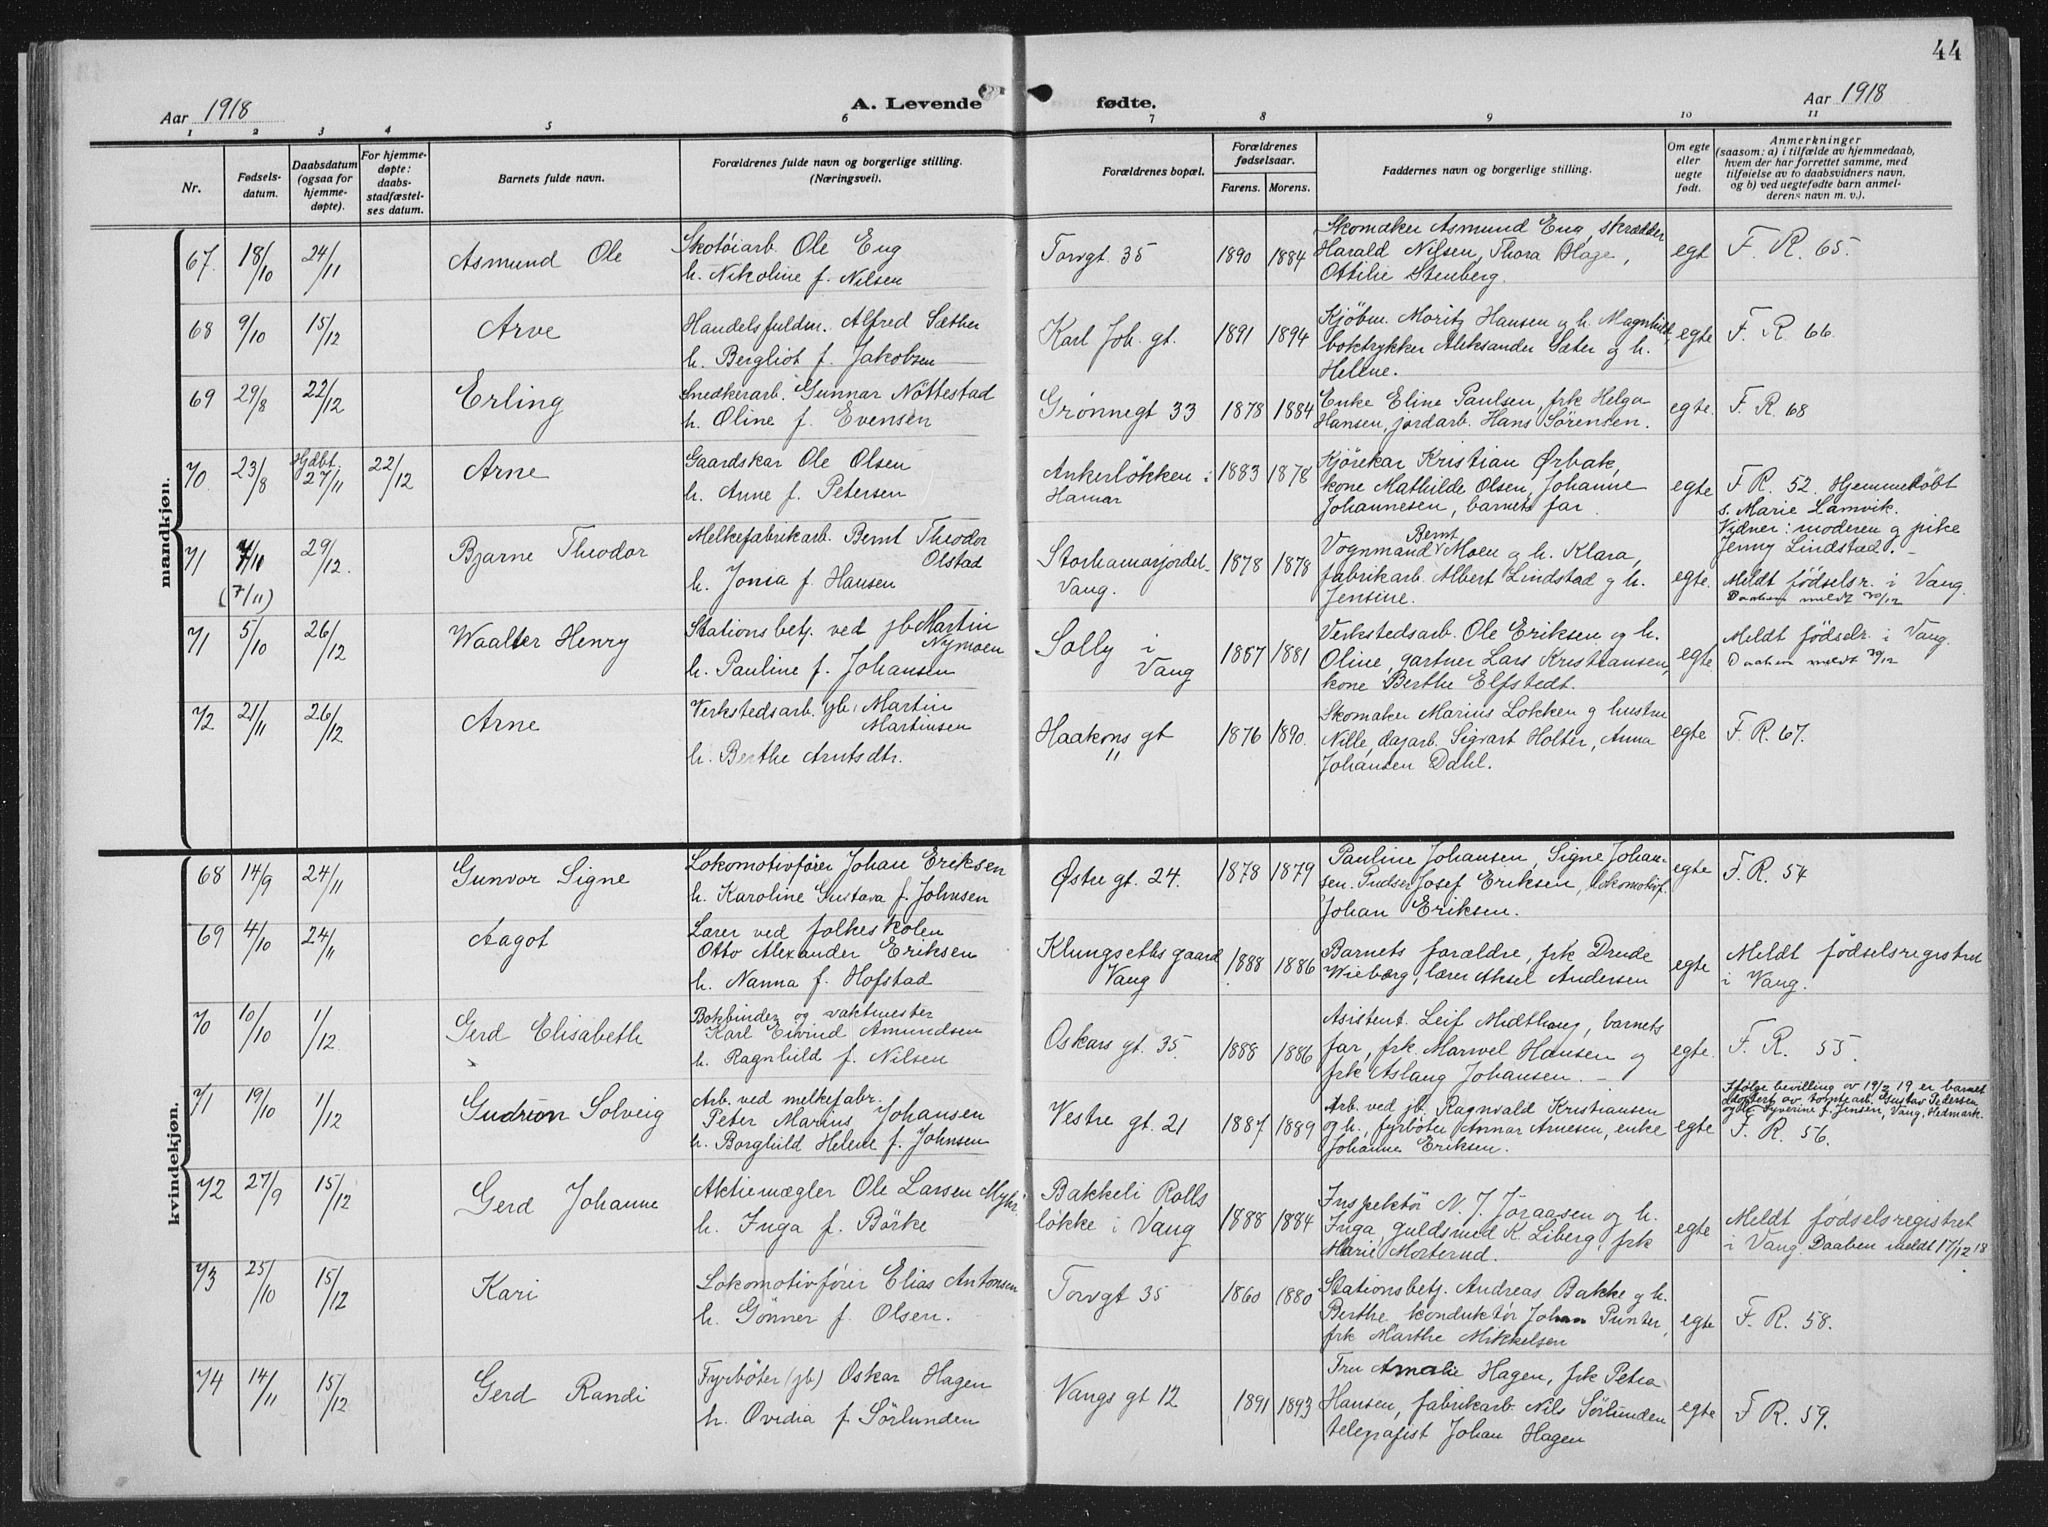 44
Aar 1918
A. Levende fødte.
Aar 1918
1 2 3 4 5 6 7 8 9 10 11
Nr.
Fødsels-
datum.
Daabsdatum
(ogsaa for
hjemme-
døpte).
For hjemme-
døpte:
daabs-
stadfæstel-
ses datum.
Barnets fulde navn.
Forældrenes fulde navn og borgerlige stilling.
(Næringsvei).
Forældrenes bopæl.
Forældrenes
fødselsaar.
Farens. Morens.
Faddernes navn og borgerlige stilling.
Om egte
eller
uegte
født.
Anmerkninger
(saasom: a) i tilfælde av hjemmedaab,
hvem der har forrettet samme, med
tilføielse av to daabsvidners navn,
og b) ved uegtefødte barn anmel-
derens navn m. v.).
mandkjøn.
67. 18/10 24/11 Asmund Ole
Skotøiarb. Ole Eng
h. Nikoline f. Nilsen
Torvgt. 35 1890 1884
Skomaker Asmund Eng, skrædder
Harald Nilsen, Thora Hage,
Ottilie Stenberg.
egt F. R. 65.
68 9/10 15/12 Arve
Handelsfuldm. Alfred Sæther
h. Bergliot f. Jakobsen
Karl Joh. gt. 1891 1894
Kjøbm. Moritz Hansen og h. Magnhild,
boktrykker Aleksander Sæter og h.
Helene.
egte F. R. 66
69 29/8 22/12 Erling
Snedkerarb. Gunnar Nöttestad
h. Oline f. Evensen
Grønnegt 33 1878 1884
Enke Eline Paulsen, frk Helga
Hansen, jordarb. Hans Sørensen.
egte. F. R. 68
70. 23/8 Hjdbt. 27/11 22/12 Arne
Gaardskar Ole Olsen
h. Anne f. Petersen
Ankerløkken i
Hamar
1883 1878
Kjørekar Kristian Ørbak,
kone Mathilde Olsen, Johanne
Johannesen, barnets far.
egte F. R. 52. Hjemmedöbt
s. Marie Lamvik.
Vidner: moderen og pike
Jenny Lindstad. –
71 7/10 (7/11) 29/12. Bjarne Theodor
Melkefabrikarb. Bernt Theodor
Olstad
h. Jonia f. Hansen
Storhamarjordet-
Vang.
1878 1878
Bernt
Vognmand Moen og h. Klara,
fabrikarb. Albert Lindstad og h.
Jensine.
egte. Meldt födselsr. i Vang.
Daaben meldt 30/12
71 5/10 26/12 Waalter Henry
Stationsbetj. ved jb. Martin
Nymoen
h. Pauline f. Johansen
Solly i
Vang
1887 1881
Verkstedsarb. Ole Eriksen og h.
Oline, gartner Lars Kristiansen,
kone Berthe Elfstedt.
egte. Meldt födselr. i Vang.
Daaben meldt 30/12
72 21/11 26/12 Arne
Verkstedsarb. jb. Martin
Martinsen
h. Berthe Arntsdtr.
Haakons gt 1876 1890.
Skomaker Marius Løkken og hustru
Nille, dajarb. Sigvart Holter, Anna
Johansen Dahl.
egte F. R. 67.
kvindekjøn.
68 14/9 24/11 Gunvor Signe
Lokomotivfører Johan Eriksen
h. Karoline Gustava f. Johnsen
Østre gt. 24. 1878 1879
Pauline Johansen, Signe Johan-
sen. Pudser Josef Eriksen, lokomotivf.
Johan Eriksen.
egte F. R. 54
69 4/10 24/11 Aagot
Lærer ved folkeskolen
Otto Alexander Eriksen
h. Nanna f. Hofstad
Klungseths gaard
Vang
1888 1886
Barnets forældre, frk Drude
Wieborg, lærer Aksel Andersen
egte Meldt födselsregistret
i Vang.
70 10/10 1/12 Gerd Elisabeth
Bokbinder og vaktmester
Karl Eivind Amundsen
h. Ragnhild f. Nilsen
Oskars gt. 35 1888 1886
Asistent. Leif Midthaug, barnets
far, frk. Marvel Hansen og
frk Aslaug Johansen. –
egte. F. R. 55.
71 19/10 1/12 Gudrun Solveig
Arb. ved melkefabr.
Peter Marius Johansen
h. Borghild Helene f. Johnsen
Vestre gt. 21 1887 1889
Arb. ved jb. Ragnvald Kristiansen
og h., fyrbøter Annar Arnesen, enke
Johanne Eriksen.
egte
Ifølge bevilling av 19/2 19 er barnet
adoptert av tomtearb. Gustav Pedersen
og h. Syverine f. Jensen, Vang, Hedmark.
F. R. 56.
72 27/9 15/12 Gerd Johanne
Aktiemægler Ole Larsen Myhr
h. Inga f. Börke
Bakkeli Rolls
løkke i Vang
1888 1884
Inspektör N. J. Jöraasen og h.
Inga, guldsmed K. Liberg, frk
Marie Morterud.
egte Meldt födselsregistret
i Vang. Daaben meldt 17/12 18
73 25/10 15/12 Kari
Lokomotivfører Elias Antonsen
h. Gönner f. Olsen.
Torvgt 35 1860 1880
Stationsbetj. Andreas Bakke og h.
Berthe, konduktør Johan Punter,
frk Marthe Mikkelsen
egte F. R. 58.
74 14/11 15/12 Gerd Randi
Fyrbøter (jb) Oskar Hagen
h. Ovidia f. Sörlunden
Vangs gt 12 1891 1893
Fru Amalie Hagen, frk Petra
Hansen, fabrikarb. Nils Sörlunden
telegrafist Johan Hagen
egte F. R. 59.